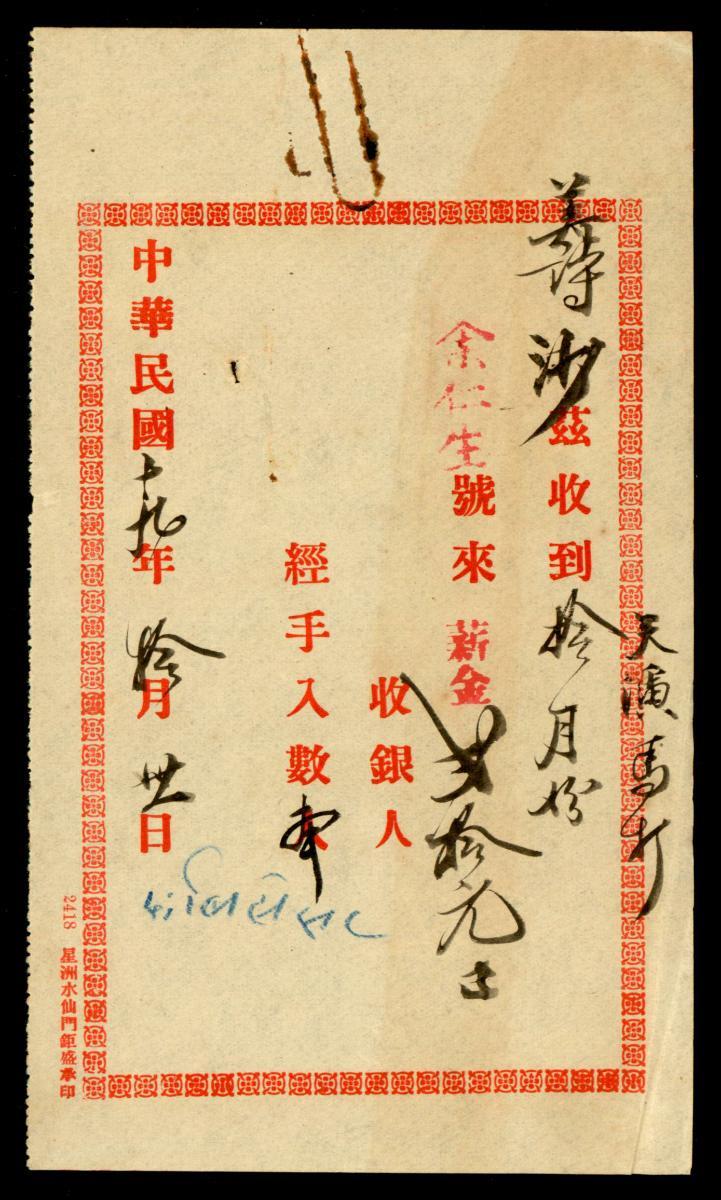 馬打
沙茲收到拾月份
余仁生號來薪金弍拾元
收銀人
經手入數人
中華民國十九年拾月卅一日
2418 星洲水仙門鉅盛承印